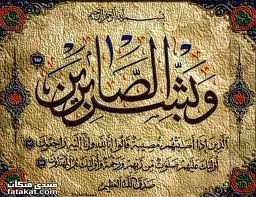 بسم الله الرحمن الرحيم
وبشر الصابرين
الذين إذا أصابتهم مصيبة قالوا إنا لله وإنا إليه راجعون
أولئك عليهم صلوات من ربهم ورحمة وأولئك هم المهتدون
صدق الله العظيم
منتدى فتكات
fatakat.com